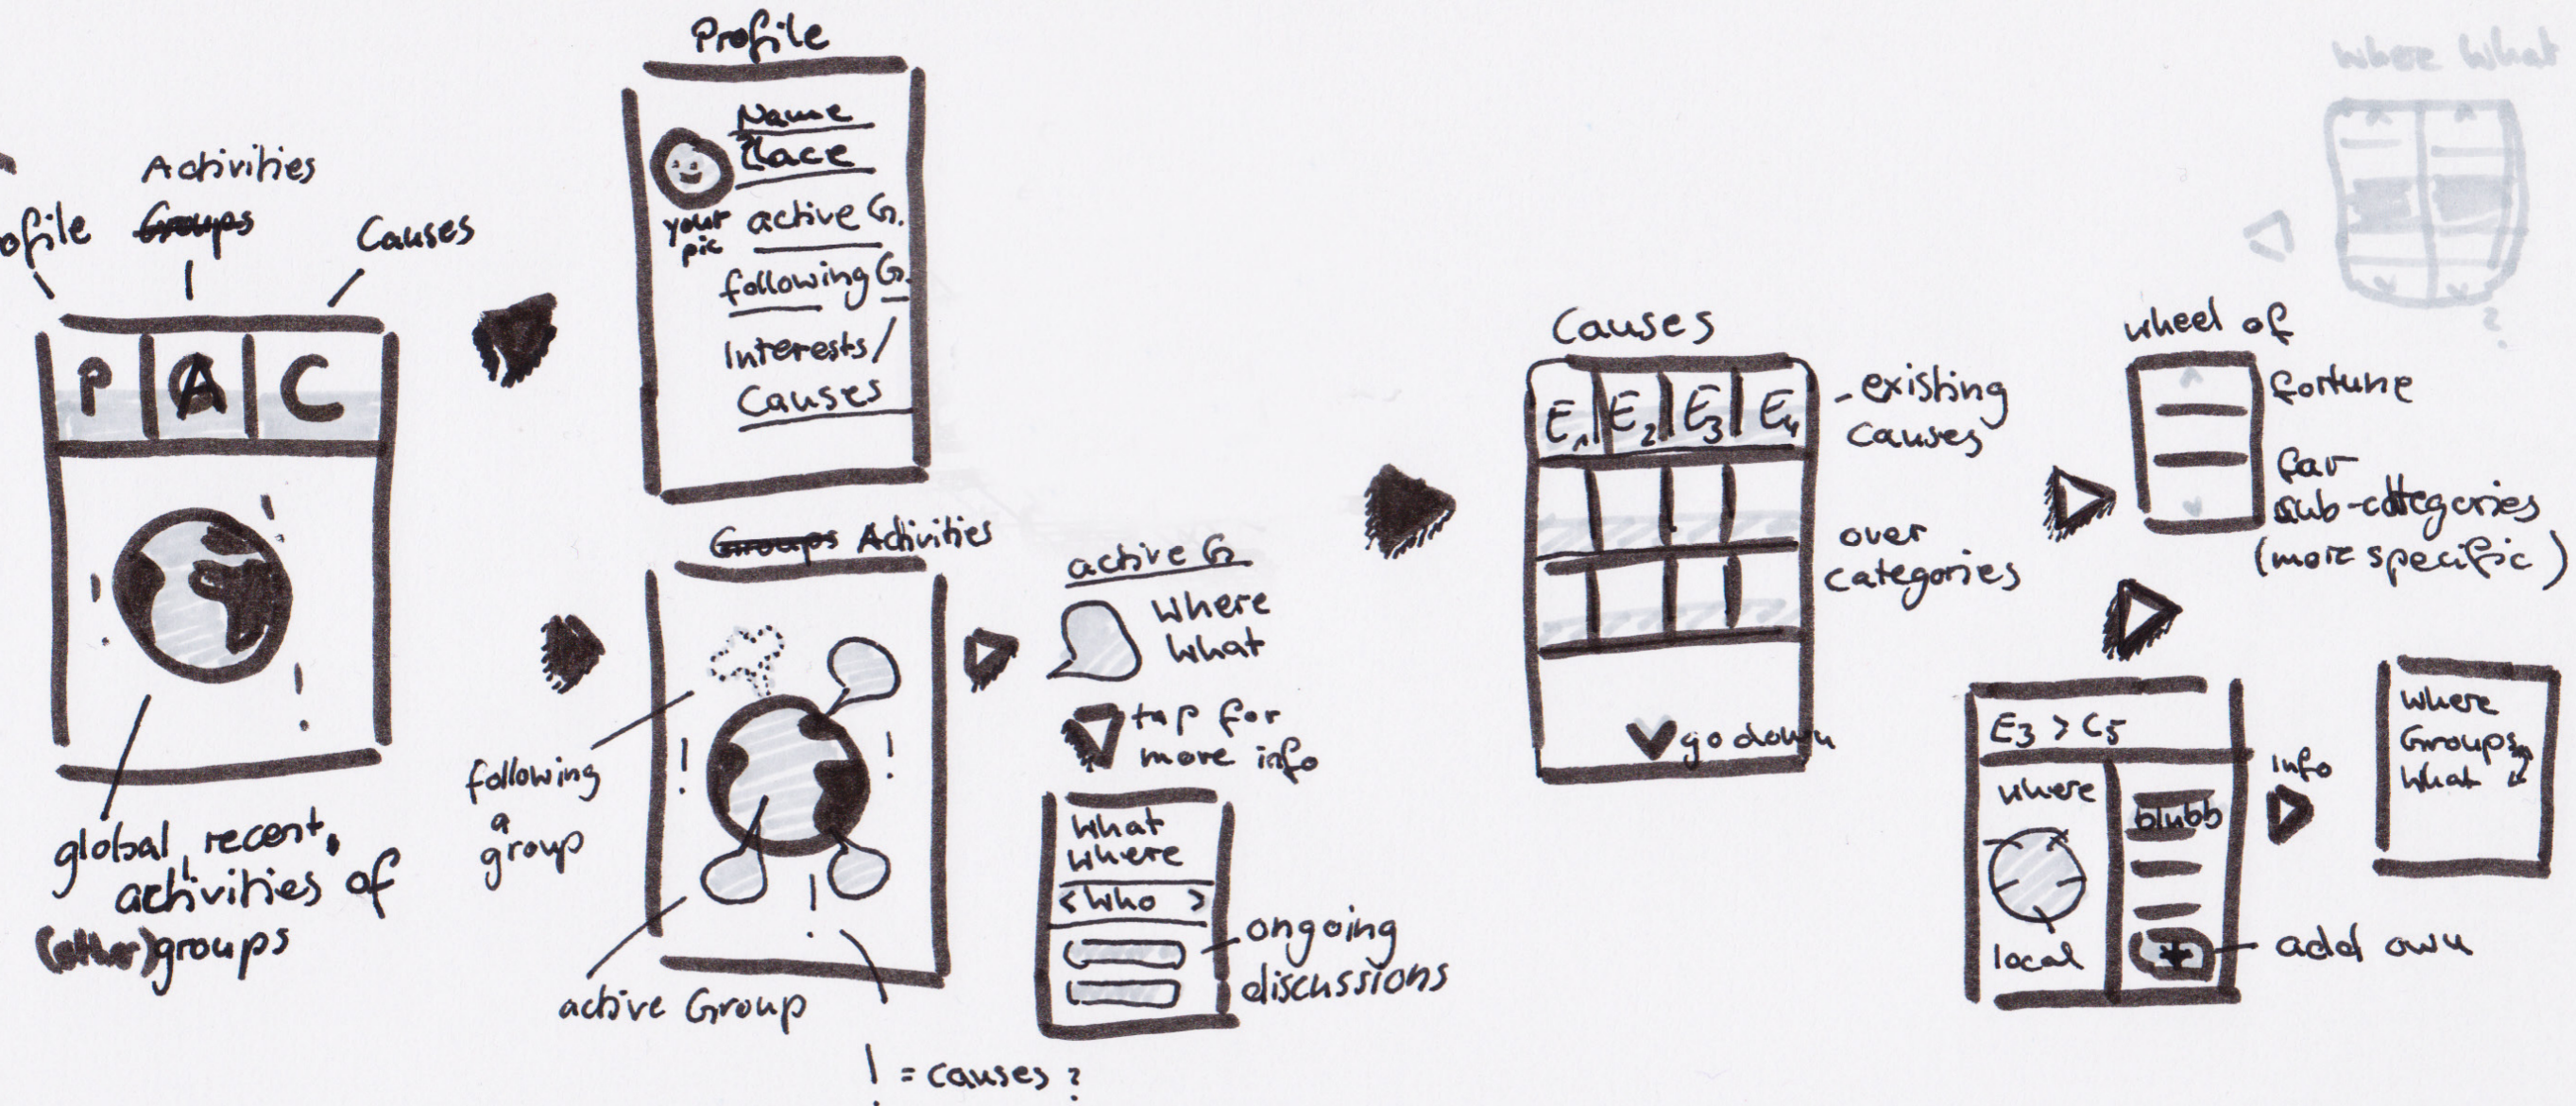 Activities
ofile
Groups
Causes
P
A
C
global, recent,
activities of
(other) groups
Profile
Name
Place
your
pic
active G.
following G.
Interests/
Causes
Groups Activities
following
a
group
active Group
! = causes ?
active G.
where
what
tap for
more info
what
where
< who >
ongoing
discussions
Causes
E1 E2 E3 E4
- existing
causes
over
categories
go down
where what
?
wheel of
fortune
for
sub-categories
(more specific)
E3 > C5
where
local
blubb
add own
info
where
Groups
what